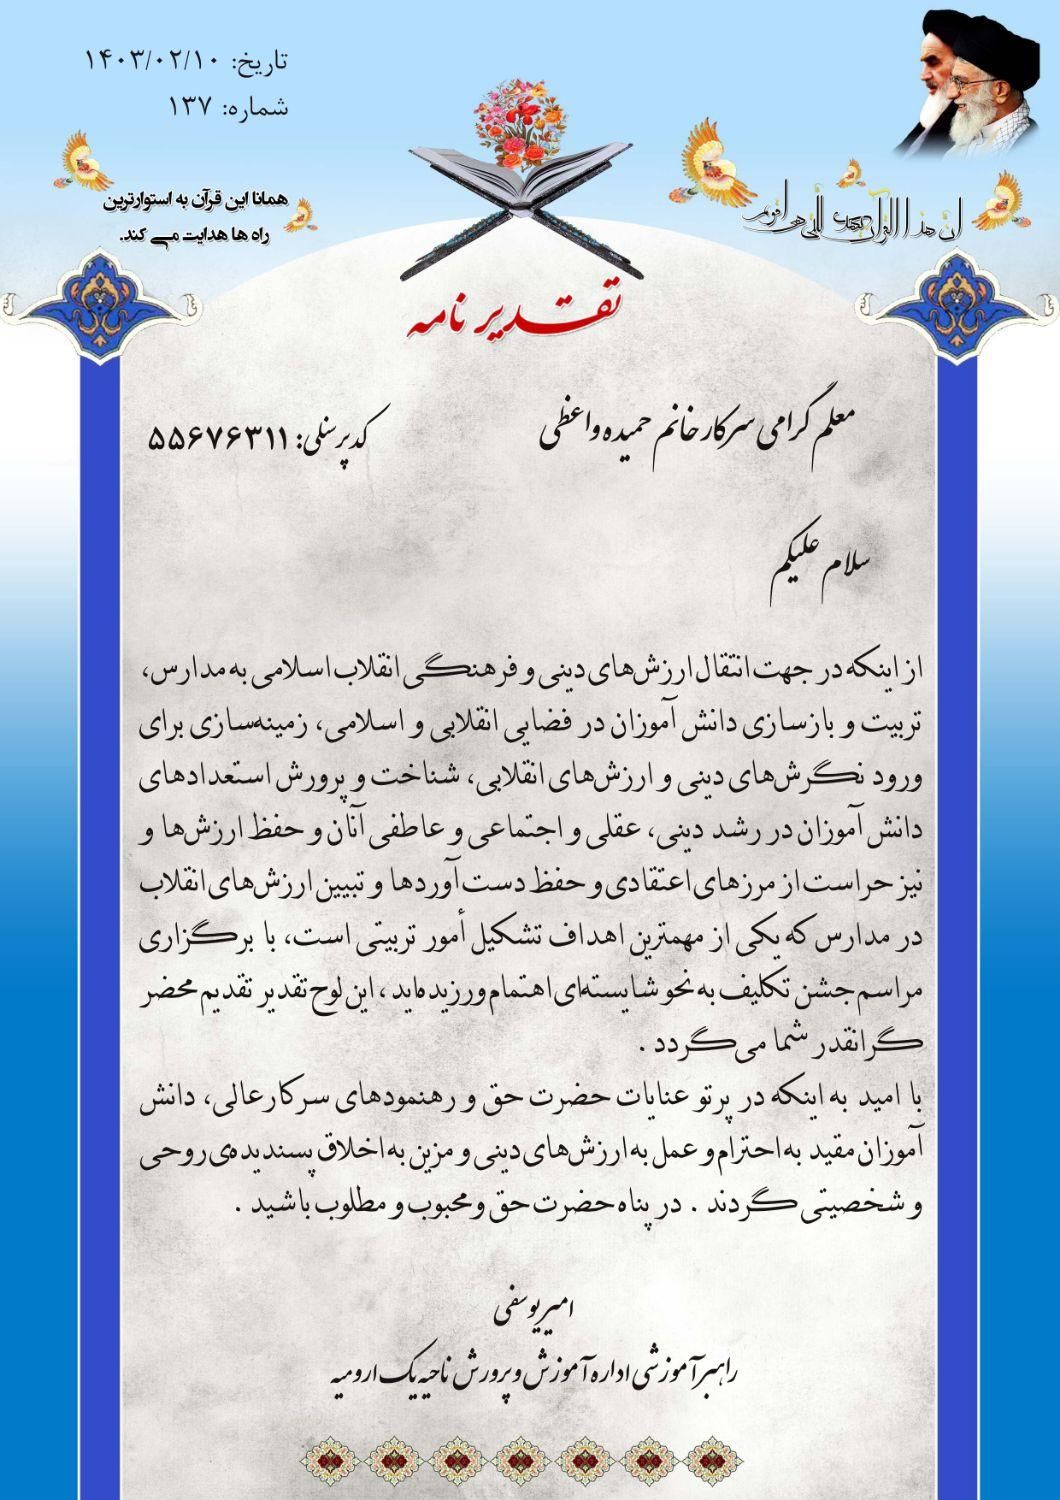 تاریخ: ۱۴۰۳/۰۲/۱۰
شماره: ۱۳۷
ان هذا القرآن یهدی للتی هی اقوم
همانا این قرآن به استوارترین
راه ها هدایت می کند.
تقدیر نامه
معلم گرامی سرکار خانم حمیده واعظی
کد پرسنلی: ۵۵۶۷۶۳۱۱
سلام علیکم
از اینکه در جهت انتقال ارزش‌های دینی و فرهنگی انقلاب اسلامی به مدارس،
تربیت و بازسازی دانش آموزان در فضایی انقلابی و اسلامی، زمینه‌سازی برای
ورود نگرش‌های دینی و ارزش‌های انقلابی، شناخت و پرورش استعدادهای
دانش آموزان در رشد دینی، عقلی و اجتماعی و عاطفی آنان و حفظ ارزش‌ها و
نیز حراست از مرزهای اعتقادی و حفظ دست‌آوردها و تبیین ارزش‌های انقلاب
در مدارس که یکی از مهمترین اهداف تشکیل أمور تربیتی است، با برگزاری
مراسم جشن تکلیف به نحو شایسته‌ای اهتمام ورزیده‌اید، این لوح تقدیر تقدیم محضر
گرانقدر شما می‌گردد .
با امید به اینکه در پرتو عنایات حضرت حق و رهنمودهای سرکارعالی، دانش
آموزان مقید به احترام و عمل به ارزش‌های دینی و مزین به اخلاق پسندیده‌ی روحی
و شخصیتی گردند . در پناه حضرت حق و محبوب و مطلوب باشید .
امیر یوسفی
راهبر آموزشی اداره آموزش و پرورش ناحیه یک ارومیه